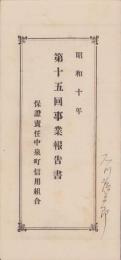 昭和十年
第十五回事業報告書
保證責任中泉町信用組合